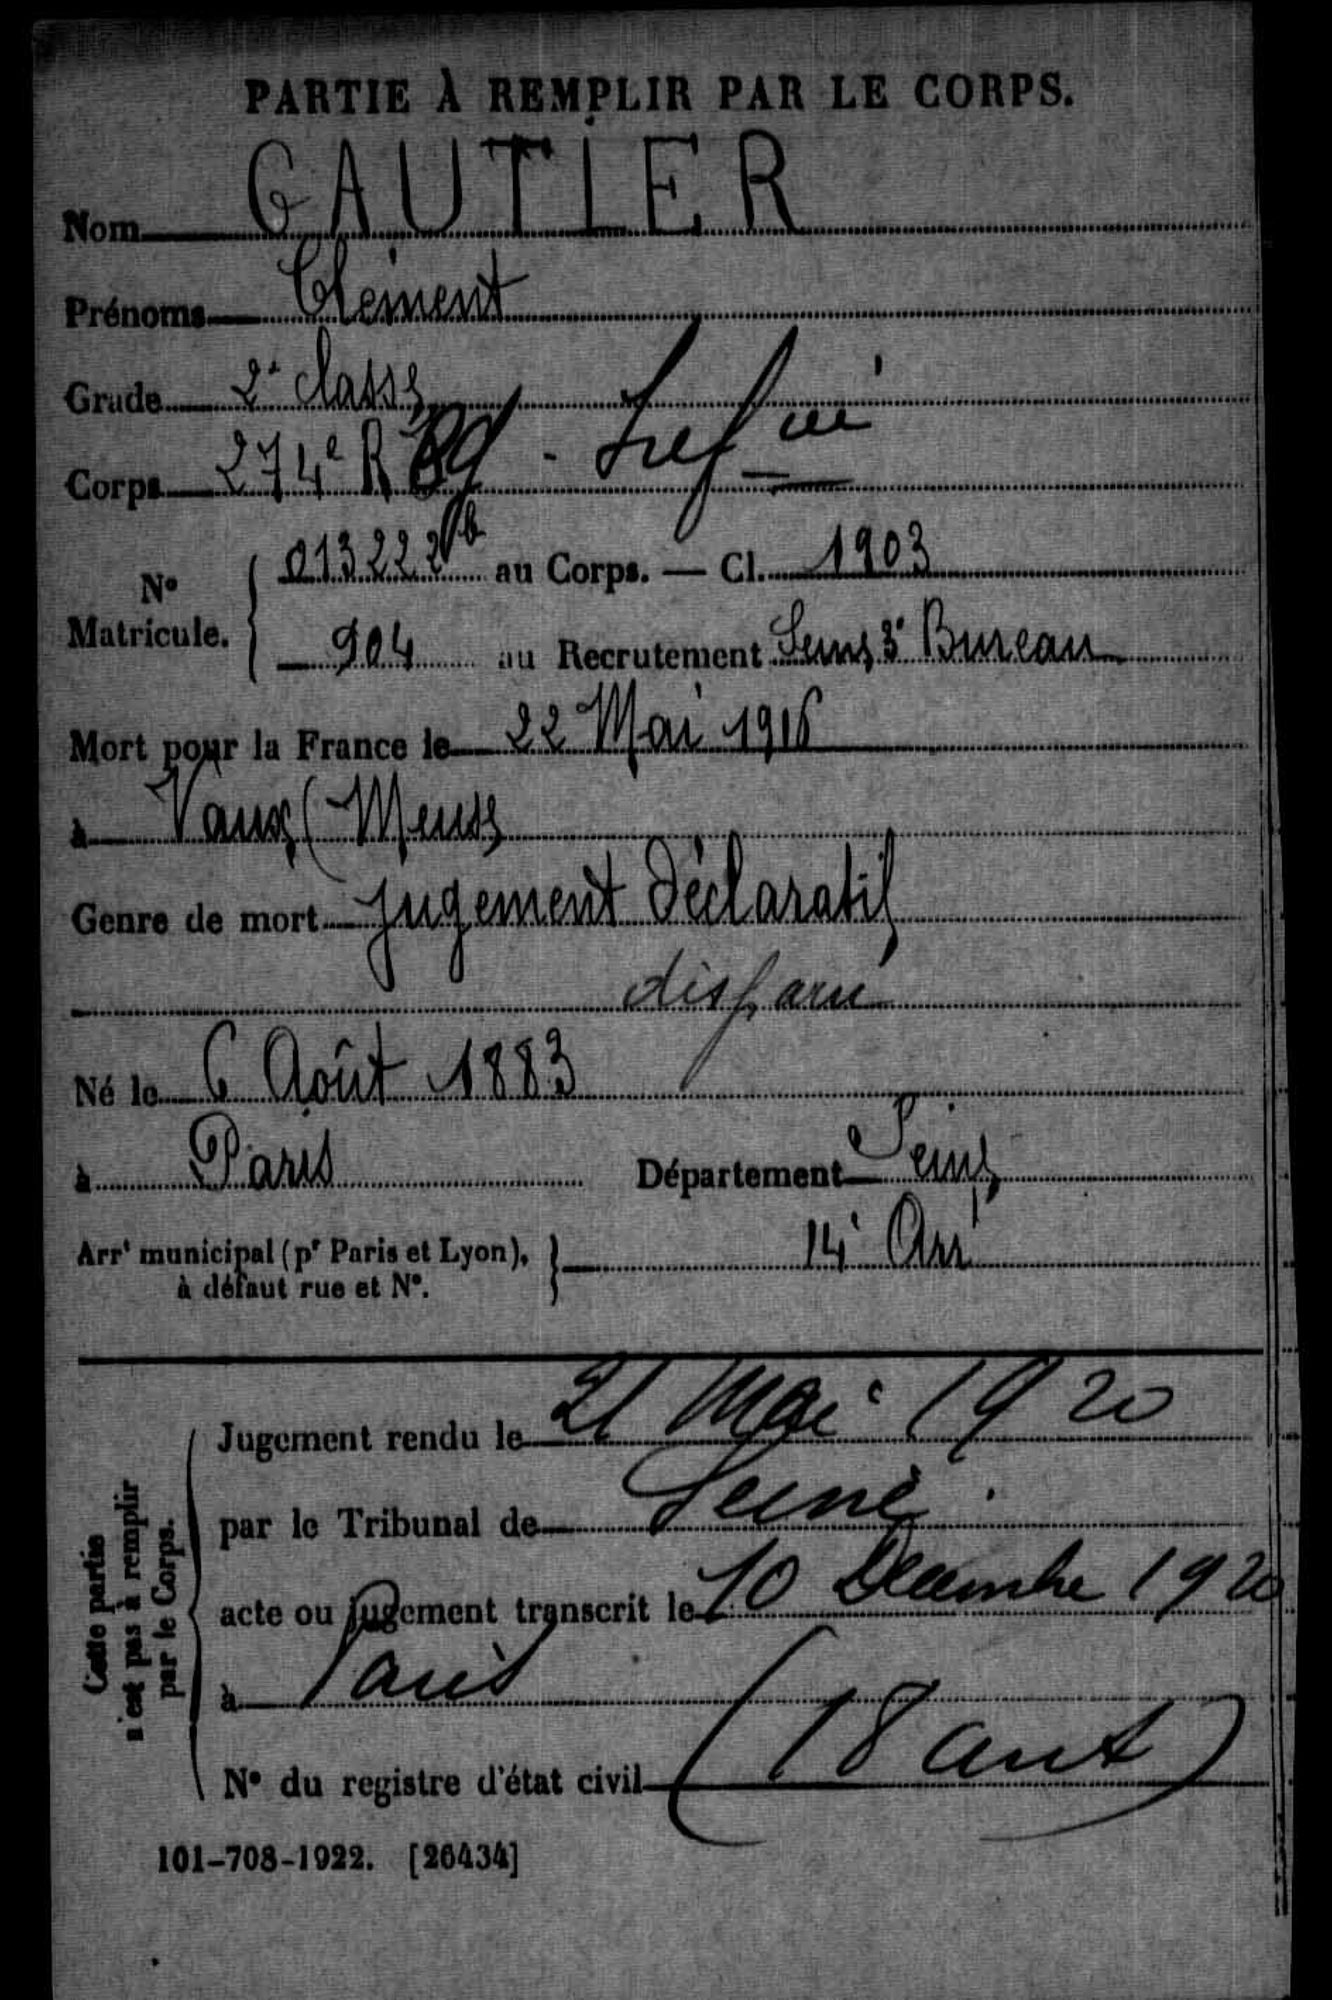 PARTIE À REMPLIR PAR LE CORPS.
Nom GAUTIER
Prénoms Clément
Grade 2e classe
Corps 274e R
013222 au Corps. — Cl. 1903
N° Matricule.
904 au Recrutement Seine 3e Bureau
Mort pour la France le 22 Mai 1916
à Vaux (Meuse
Genre de mort Jugement Déclaratif
disparu
Né le 6 Août 1883
à Paris Département Seine
Arrt municipal (pr Paris et Lyon), 14e Arrt
à défaut rue et N°.
Jugement rendu le 21 Mai 1920
par le Tribunal de Seine
acte ou jugement transcrit le 10 Décembre 1920
à Paris
N° du registre d'état civil (18 arrt)
Cette partie
n'est pas à remplir
par le Corps.
101-708-1922. [26434]